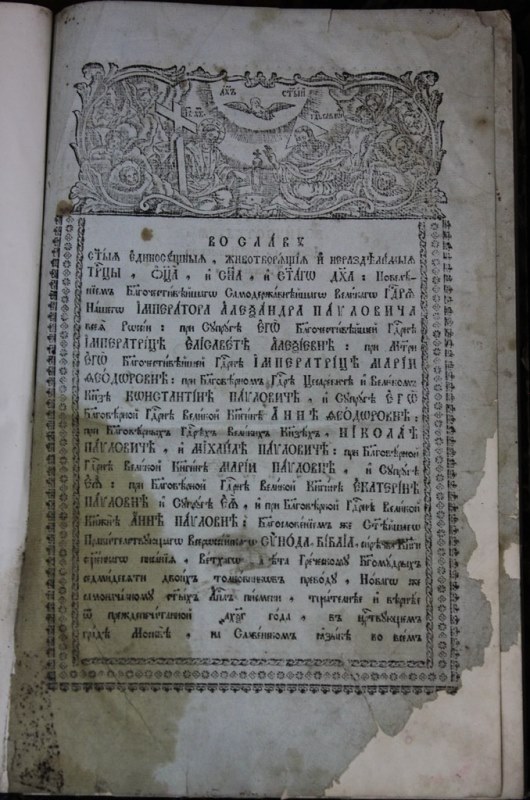 ДХЪ СТЫЙ
ВО СЛАВУ
СТЫѦ ЕДИНОСꙋЩНЫѦ, ЖИВОТВОРѦЩІѦ И НЕРАЗДѢЛИМЫѦ
ТРЦЫ, ОЦА, И СНА, И СТАГѠ ДХА: ПОВЕЛѢ-
НІЕМЪ БЛГОЧЕСТИВѢЙШАГѠ САМОДЕРЖАВНѢЙШАГѠ ВЕЛИКАГѠ ГДРѦ
НАШЕГѠ ІМПЕРАТОРА АЛЕѮАНДРА ПАѴЛОВИЧА
ВСЕѦ РѠССІИ: ПРИ СꙋПРꙋГѢ ЕГѠ БЛГОЧЕСТИВѢЙШЕЙ ГДРНѢ
ІМПЕРАТРИЦѢ ЕЛІСАВЕТѢ АЛЕѮІЕВНѢ: ПРИ МТРИ
ЕГѠ БЛГОЧЕСТИВѢЙШЕЙ ГДРНѢ ІМПЕРАТРИЦѢ МАРІИ
ѲЕОДѠРОВНѢ: ПРИ БЛГОВѢРНОМЪ ГДРѢ ЦЕСАРЕВИЧѢ И ВЕЛИКОМЪ
КНЗѢ КѠНСТАНТІНѢ ПАѴЛОВИЧѢ, И СꙋПРꙋГѢ ЕГѠ
БЛГОВѢРНОЙ ГДРНѢ ВЕЛИКОЙ КНГИНѢ АННѢ ѲЕОДѠРОВНѢ:
ПРИ БЛГОВѢРНЫХЪ ГДРѢХЪ ВЕЛИКИХЪ КНЗѢХЪ, НІКОЛАѢ
ПАѴЛОВИЧѢ, И МІХАИЛѢ ПАѴЛОВИЧѢ: ПРИ БЛГОВѢРНОЙ
ГДРНѢ ВЕЛИКОЙ КНГИНѢ МАРІИ ПАѴЛОВНѢ, И СꙋПРꙋГѢ
ЕѦ: ПРИ БЛГОВѢРНОЙ ГДРНѢ ВЕЛИКОЙ КНГИНѢ ЕКАТЕРІНѢ
ПАѴЛОВНѢ И СꙋПРꙋГѢ ЕѦ, И ПРИ БЛГОВѢРНОЙ ГДРНѢ ВЕЛИКОЙ
КНЖНѢ АННѢ ПАѴЛОВНѢ: БЛГОСЛОВЕНІЕМЪ ЖЕ СТѢЙШАГѠ
ПРАВИТЕЛЬСТВꙋЮЩАГѠ СѴНОДА, БІБЛІА, СИРѢЧЬ КНИГИ
СЩЕННАГѠ ПИСАНІѦ, ВЕТХАГѠ ЗАВѢТА ГРЕЧЕСКОМꙋ БГОМꙋДРЫХЪ
СЕДМИДЕСѦТИ ДВОИХЪ ТОЛКОВНИКѠВЪ ПРЕВОДꙋ, НОВАГѠ ЖЕ
САМОВИЧНОМꙋ СТЫХЪ АПЛЪ ПИСМЕНИ, ТЩАТЕЛНѢЕ И ВѢРНѢЕ
Ѿ ПРЕЖДЕПЕЧАТАННОЙ ГОДА, ВЪ ЦРТВꙋЮЩЕМЪ
ГРАДѢ МОСКВѢ, НА СЛАВЕНСКОМЪ ѦЗЫКѢ ВО ВСЕМЪ